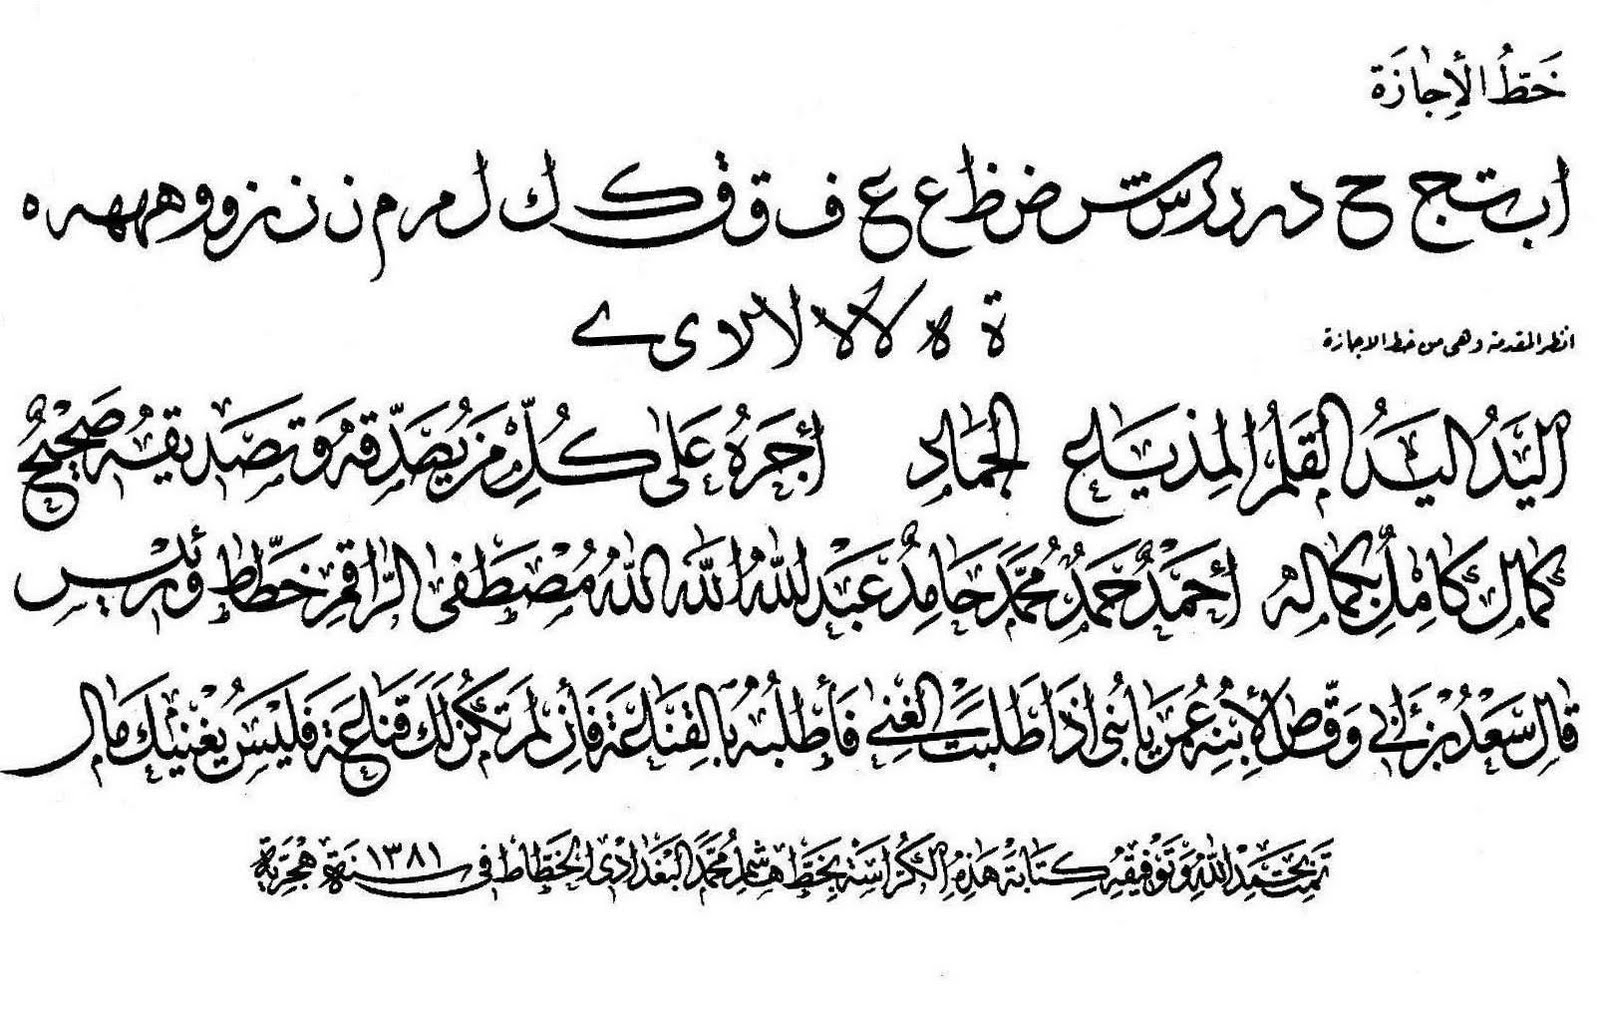 خَطُّ الْإِجَازَة
ا ب ت ج ح د د ر ر س ش ص ض ظ ع ع ف ق ك ك ل م م ن ن ز و و ه ه ه
ة ه لا لا لا ى ے
انظر المقدمة وهى من خط الاجازة
اليَدُ اليَدُ القَلَمُ المِذيَاعِ الحَمَادِ أجرَهُ عَلى كُلِّ مَن يُصَدِّقهُ وَتَصدِيقِه صَحِيْحٌ
كَمَال كَامِلُ بِكَمالِهِ أحمَدُ حَمَدُ مُحَمَّدْ حَامِدُ عَبد اللهُ اللَّه اللهُ مُصْطَفى الرَّاقم خَطَّاط
قَالَ سَعْدُ بْن أَبي وَقَّاص لِابْنِهِ عُمَرَ يَابُنى اذَا طَلَبْتَ الغِنَى فَأطْلُبْهُ بِالقِنَاعَة فَاِن لَم تَكُنْ لَكَ قَنَاعَة فَلَيْسَ يُغْنِيْكَ مَال
تمت بِحَمْدِ اللهِ وَتَوْفِيْقِهِ كِتَابَةُ هَذِهِ الكُرَّاسَةِ بِخَطِّ هَاشِم مُحَمَّد البَغْدَادى الخَطَّاط فى سَنَة ١٣٨١ هِجْرِيَّة